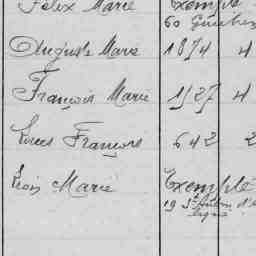 Félix Marie Exempté
60 Guiche
Auguste Marie 1874 4
François Marie 1927 4
Louis François 642 2
Léon Marie Exempté
19 St